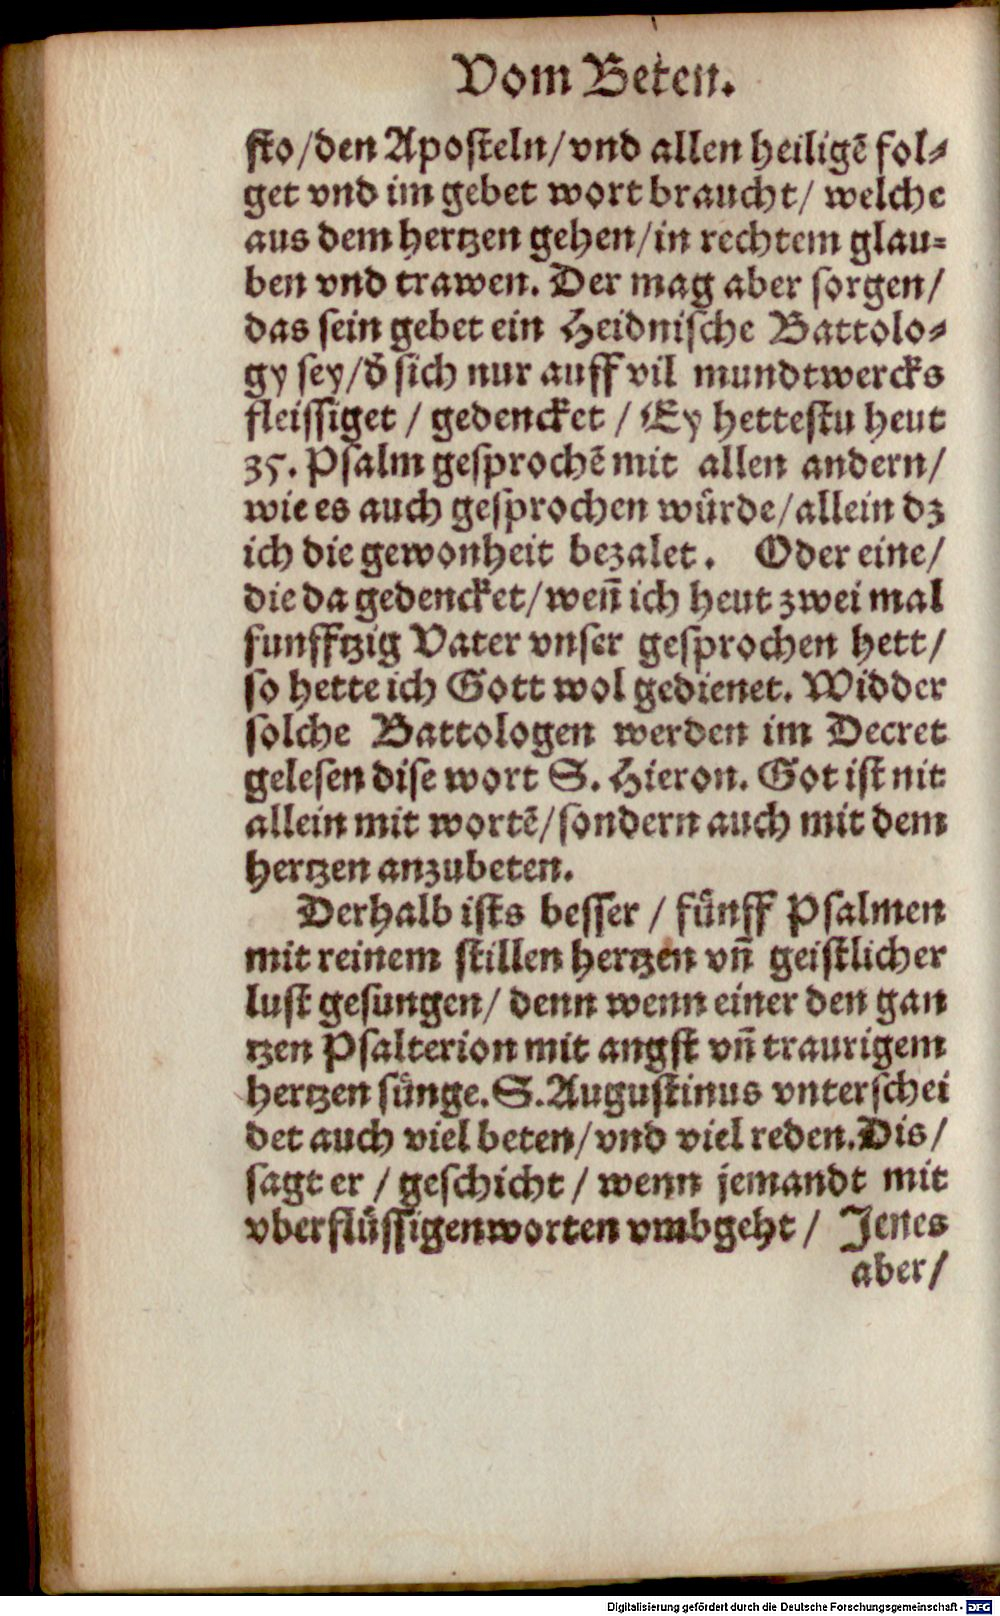 Vom Beten.
sto/den Aposteln/vnd allen heiligẽ fol⸗
get vnd im gebet wort braucht/ welche
aus dem hertzen gehen/in rechtem glau⸗
ben vnd trawen. Der mag aber sorgen/
das sein gebet ein Heidnische Battolo⸗
gy sey/d̕ sich nur auff vil mundtwercks
fleissiget / gedencket / Ey hettestu heut
35. Psalm gesprochẽ mit allen andern/
wie es auch gesprochen wuͤrde/allein dz
ich die gewonheit bezalet. Oder eine/
die da gedencket/wen̄ ich heut zwei mal
funfftzig Vater vnser gesprochen hett/
so hette ich Gott wol gedienet. Widder
solche Battologen werden im Decret
gelesen dise wort S. Hieron. Got ist nit
allein mit wortẽ/sondern auch mit dem
hertzen anzubeten.
Derhalb ists besser / fuͤnff Psalmen
mit reinem stillen hertzen vn̄ geistlicher
lust gesungen/ denn wenn einer den gan
tzen Psalterion mit angst vn̄ traurigem
hertzen suͤnge. S. Augustinus vnterschei
det auch viel beten/vnd viel reden. Dis/
sagt er / geschicht / wenn jemandt mit
vberfluͤssigen worten vmbgeht / Jenes
aber/
Digitalisierung gefördert durch die Deutsche Forschungsgemeinschaft - DFG